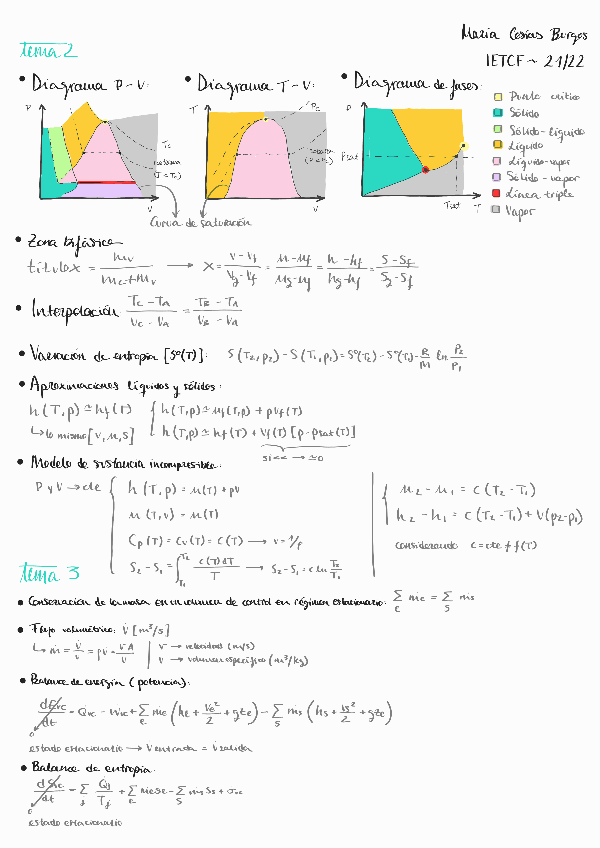 María Cosías Burgos
tema 2
IETCF ~ 21/22
• Diagrama P-V:
• Diagrama T-V:
• Diagrama de fases:
P
T
P
Pc
Tc
isoterma
(T < Tc)
isobara
(P < Pc)
Psat
Tsat
T
V
V
Punto crítico
Sólido
Sólido-líquido
Líquido
Líquido-vapor
Sólido-vapor
Línea triple
Vapor
Curva de saturación
• Zona bifásica
título x = mv / (mL+mv) → x = (v-vf)/(vg-vf) = (u-uf)/(ug-uf) = (h-hf)/(hg-hf) = (s-sf)/(sg-sf)
• Interpolación: (Tc-TA)/(vc-vA) = (TB-TA)/(vB-vA)
• Variación de entropía [sº(T)]: s(T2,p2) - s(T1,p1) = sº(T2) - sº(T1) - R/M ln p2/p1
• Aproximaciones líquidos y sólidos:
h(T,p) ≃ hf(T)
↳ lo mismo [v,u,s]
h(T,p) ≃ uf(T,p) + pvf(T)
h(T,p) ≃ hf(T) + vf(T) [p-psat(T)]
si << → ≃0
• Modelo de sustancia incompresible:
p y v → cte
h(T,p) = u(T) + pv
u(T,v) = u(T)
Cp(T) = Cv(T) = C(T) → v = 1/ρ
S2 - S1 = ∫T1^T2 c(T)dT / T → S2-S1 = c ln T2/T1
u2 - u1 = c(T2-T1)
h2 - h1 = c(T2-T1) + v(p2-p1)
considerando c = cte ≠ f(T)
tema 3
• Conservación de la masa en un volumen de control en régimen estacionario: Σe ṁe = Σs ṁs
• Flujo volumétrico: V̇ [m³/s]
↳ ṁ = V̇/v = ρV̇ = vA/v
v → velocidad (m/s)
v → volumen específico (m³/kg)
• Balance de energía (potencia):
dEvc/dt = Q̇vc - Ẇvc + Σe ṁe (he + ve²/2 + gze) - Σs ṁs (hs + vs²/2 + gze)
0
estado estacionario → V̇entrada = V̇salida
• Balance de entropía:
dSvc/dt = Σj Q̇j/Tj + Σe ṁe se - Σs ṁs ss + σ̇vc
0
estado estacionario